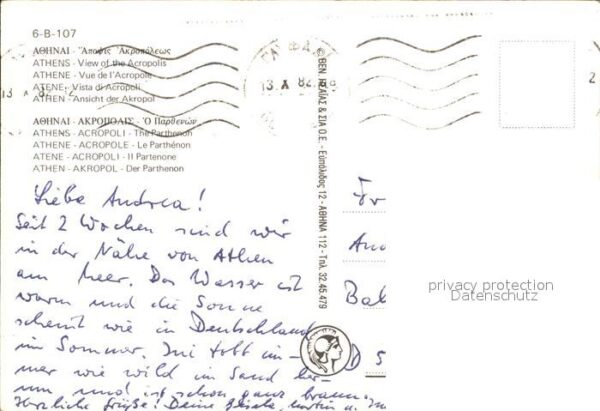 6-B-107
ΑΘΗΝΑΙ - Ἄποψις Ἀκροπόλεως
ATHENS - View of the Acropolis
ATHENE - Vue de l'Acropole
ATENE - Vista di Acropoli
ATHEN - Ansicht der Akropol
ΑΘΗΝΑΙ - ΑΚΡΟΠΟΛΙΣ - Ὁ Παρθενών
ATHENS - ACROPOLI - The Parthenon
ATHENE - ACROPOLE - Le Parthénon
ATENE - ACROPOLE - Il Partenone
ATHEN - AKROPOL - Der Parthenon
13 X 82
& ΣΙΑ Ο.Ε. - Εὐπύλιδος 12 - ΑΘΗΝΑ 112 - Τηλ. 32.45.479
Liebe Andrea!
Seit 2 Wochen sind wir
in der Nähe von Athen
am Meer. Das Wasser ist
warm und die Sonne
scheint wie in Deutschland
im Sommer. Ini tobt im-
mer wie wild im Sand her-
um und ist schon ganz braun.
Herzliche Grüße! Deine
Fr
And
Bal
D 5
privacy protection
Datenschutz